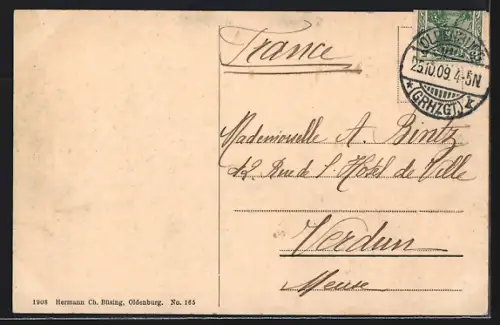 France
OLDENBURG
25.10.09.4-5N
*(GRHZGT.)*
Mademoiselle A. Bintz
12 Rue de l'Hôtel de Ville
Verdun
Meuse
1908 Hermann Ch. Büsing, Oldenburg. No. 165